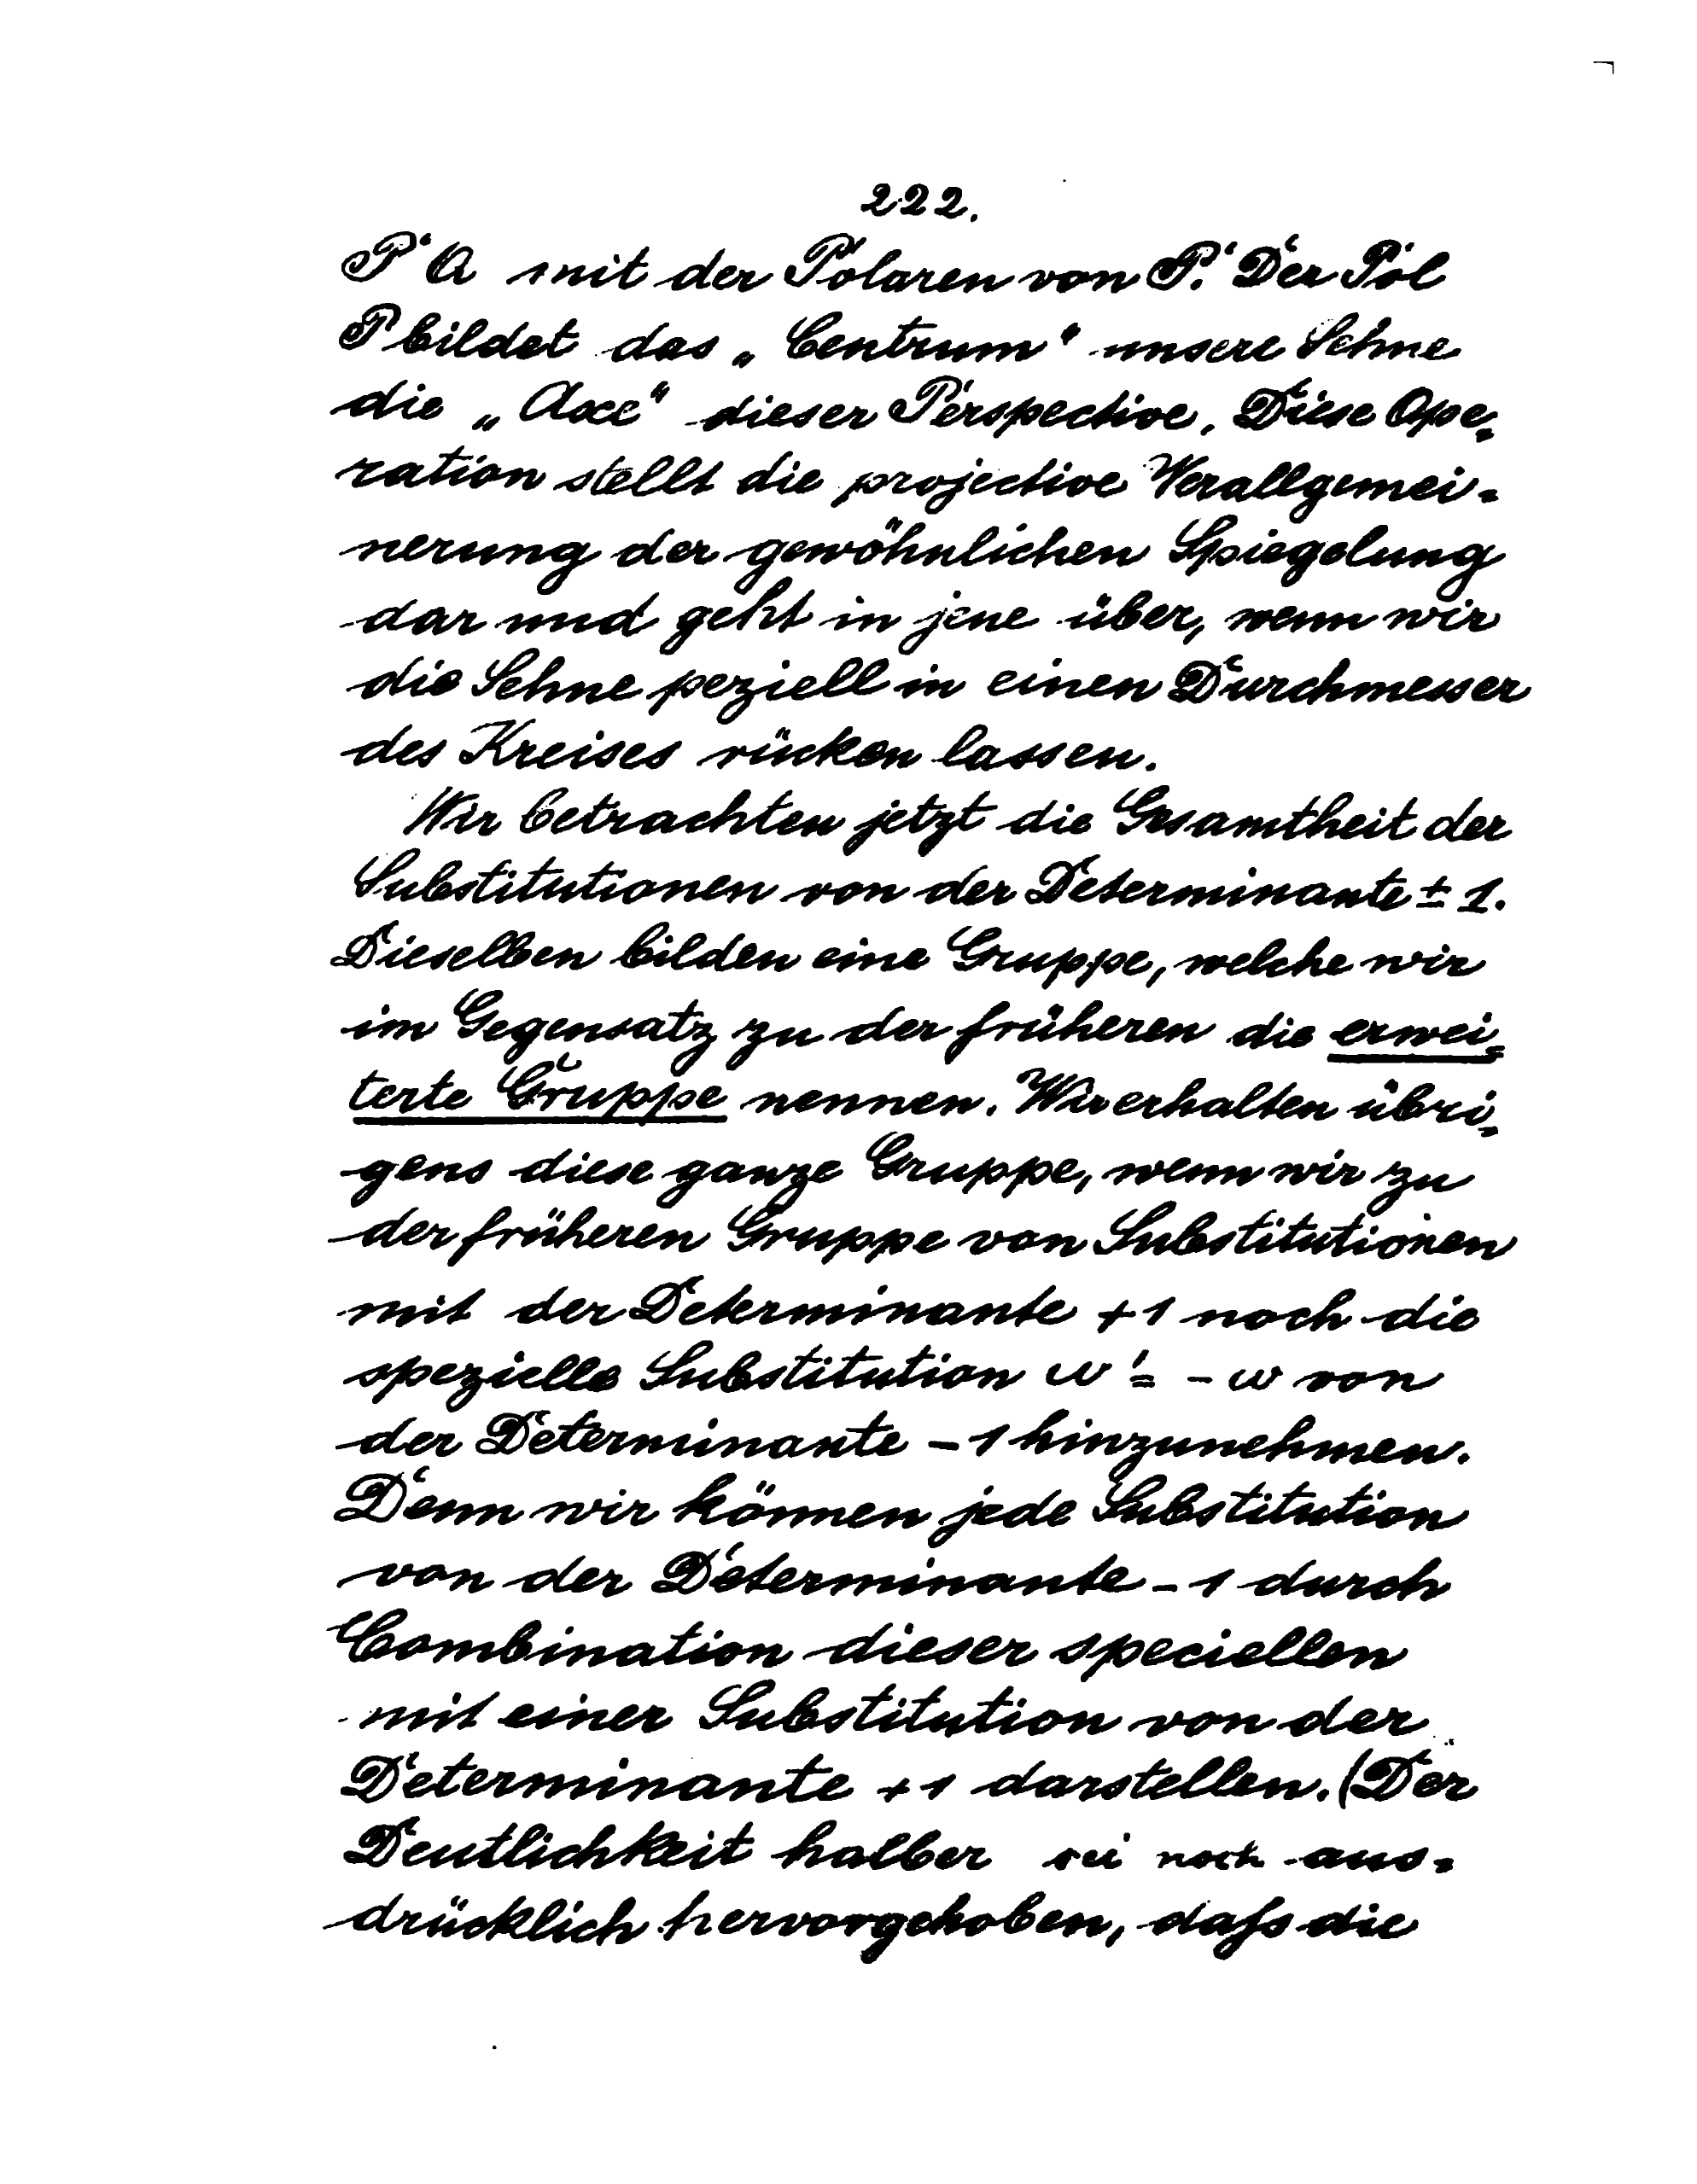 222.
P A mit der Polaren von P. Der Pol
P bildet das „Centrum“ unsere Sehne
die „Axe“ dieser Perspective. Diese Ope-
ration stellt die projective Verallgemei-
nerung der gewöhnlichen Spiegelung
dar und geht in jene über, wenn wir
die Sehne peziell in einen Durchmesser
des Kreises rücken lassen.
Wir betrachten jetzt die Gesamtheit der
Substitutionen von der Determinante ± 1.
Dieselben bilden eine Gruppe, welche wir
im Gegensatz zu der früheren die erwei-
terte Gruppe nennen. Wir erhalten übri-
gens diese ganze Gruppe, wenn wir zu
der früheren Gruppe von Substitutionen
mit der Determinante +1 noch die
spezielle Substitution ω' = - ω von
der Determinante -1 hinzunehmen.
Denn wir können jede Substitution
von der Determinante -1 durch
Combination dieser speciellen
mit einer Substitution von der
Determinante +1 darstellen. (Der
Deutlichkeit halber sei noch aus-
drücklich hervorgehoben, daß die